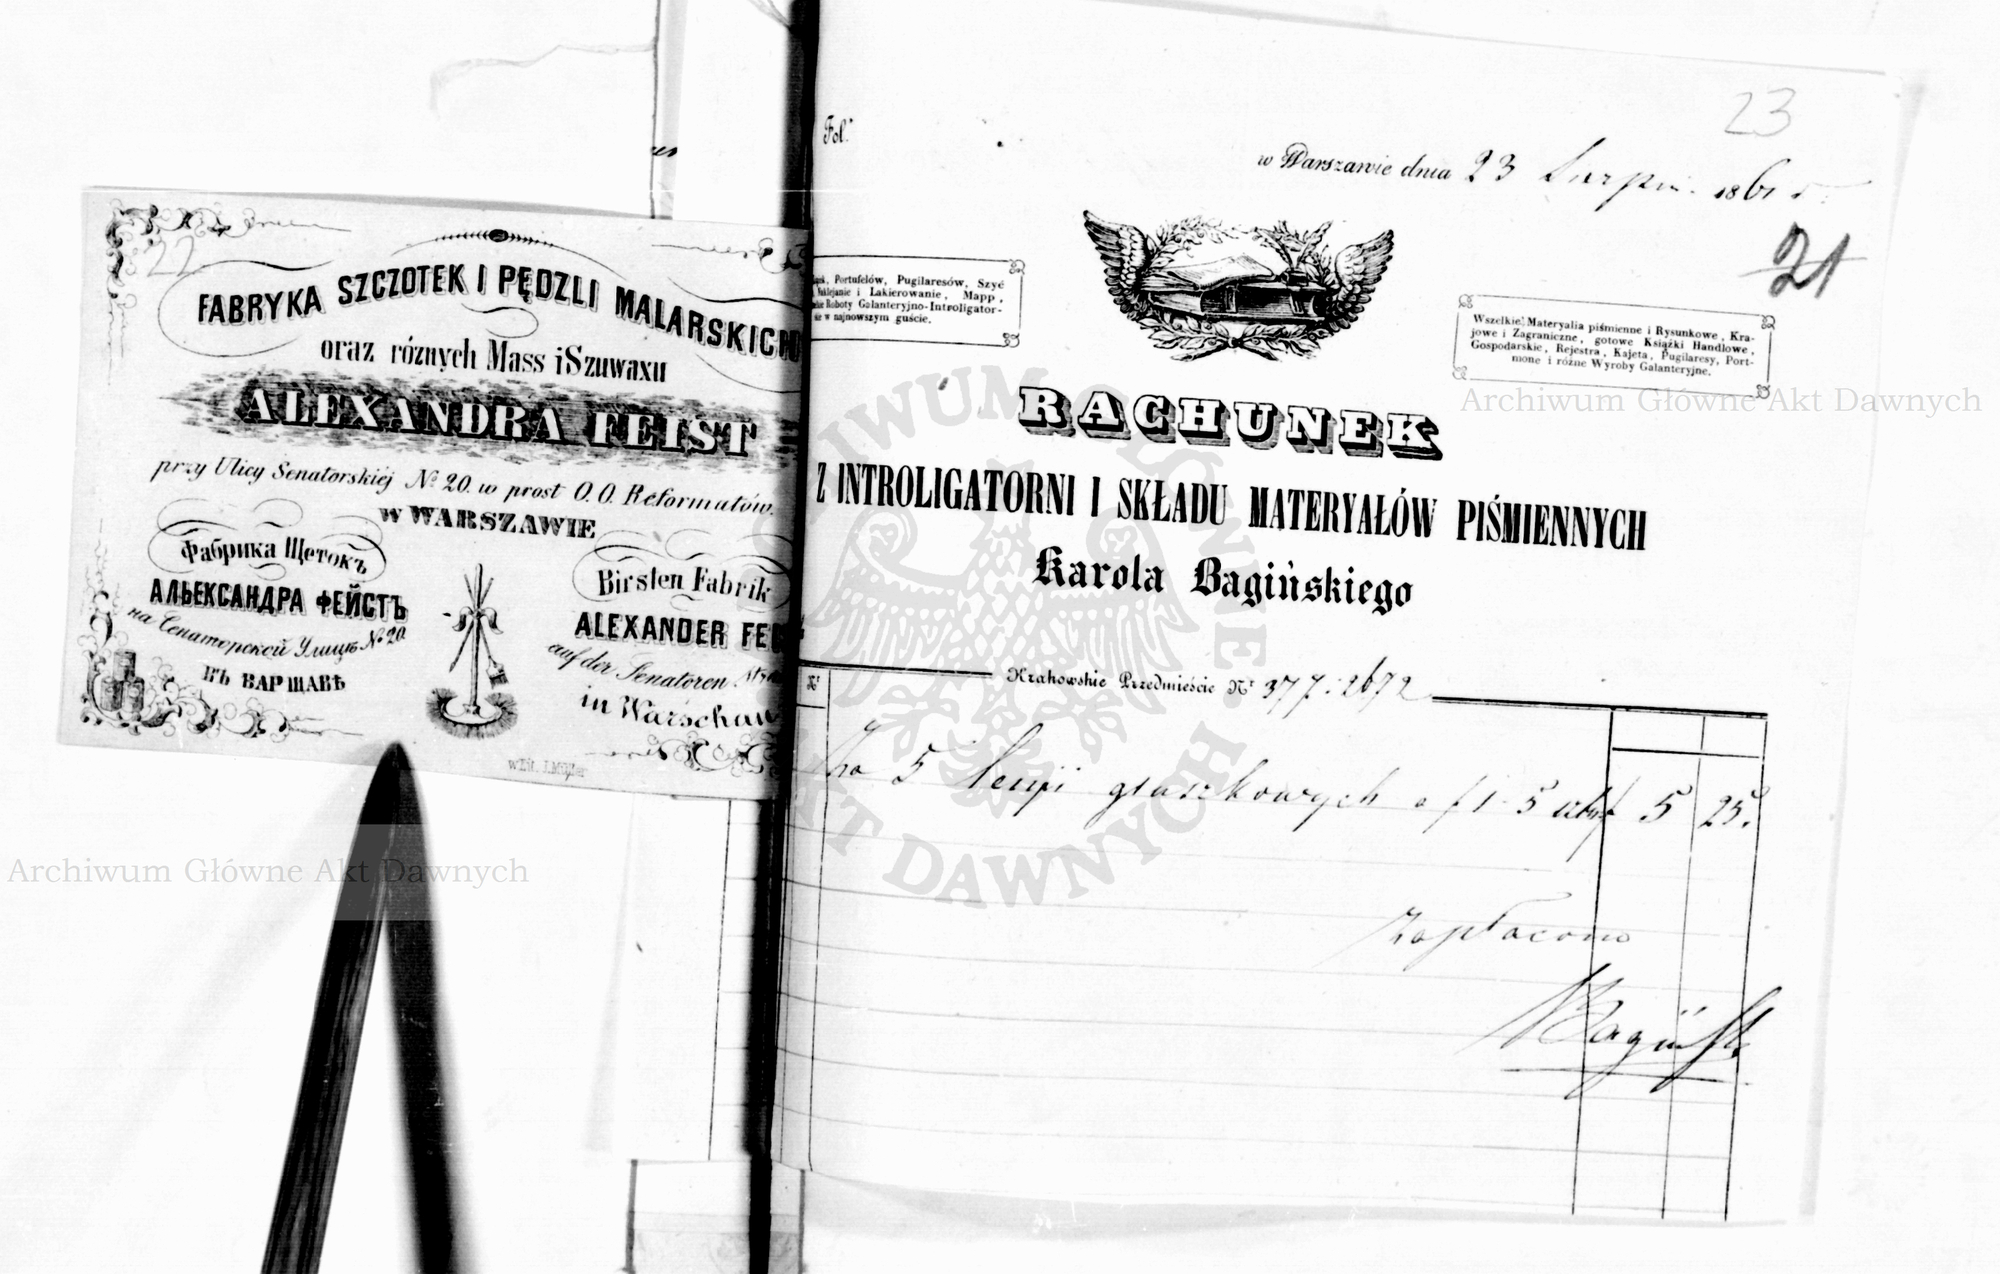 22
FABRYKA SZCZOTEK I PĘDZLI MALARSKICH
oraz różnych Mass i Szuwaxu
ALEXANDRA FEIST
przy Ulicy Senatorskiéj No 20. w prost O.O. Reformatów.
w WARSZAWIE
Фабрика Щетокъ
АЛЬЕКСАНДРА ФЕЙСТЪ
на Сенаторской Улицѣ No 20
въ ВАРШАВѢ
Birsten Fabrik
ALEXANDER FE
auf der Senatoren
in Warschau
w Lit. J. Müller
23
Fol.
w Warszawie dnia 23 Sierpn. 1861 r.
21
Portufelów, Pugilaresów, Szyć
Naklejanie i Lakierowanie, Mapp,
Roboty Galanteryjno-Introligator-
w najnowszym guście.
Wszelkie Materyalia piśmienne i Rysunkowe, Kra-
jowe i Zagraniczne, gotowe Książki Handlowe,
Gospodarskie, Rejestra, Kajeta, Pugilaresy, Port-
mone i różne Wyroby Galanteryjne.
RACHUNEK
Z INTROLIGATORNI I SKŁADU MATERYAŁÓW PIŚMIENNYCH
Karola Bagińskiego
Krakowskie Przedmieście Nr 377:2672
Nr
Za 5 5 25.
Zapłacono
Bagiński
Archiwum Główne Akt Dawnych
Archiwum Główne Akt Dawnych
ARCHIWUM GŁÓWNE AKT DAWNYCH